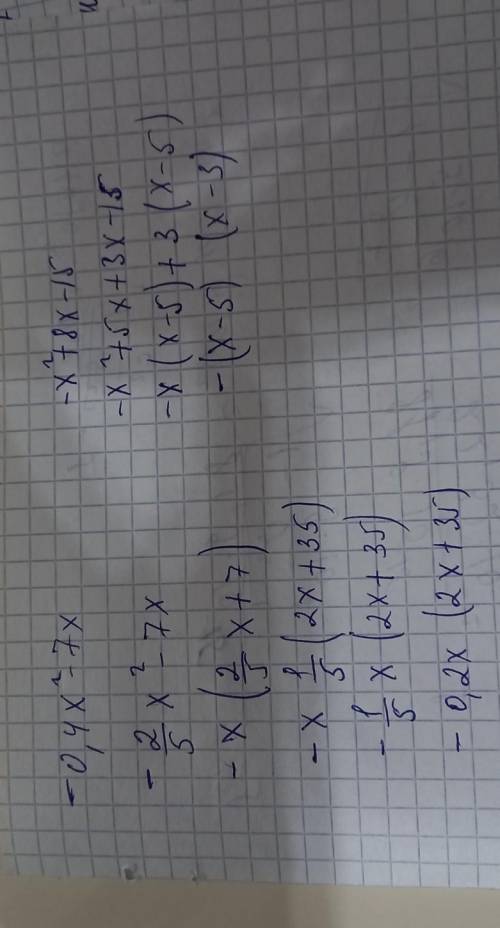 -0,4x²-7x
-2/5x²-7x
-x(2/5x+7)
-x1/5(2x+35)
-1/5x(2x+35)
-0,2x(2x+35)
-x²+8x-15
-x²+5x+3x-15
-x(x-5)+3(x-5)
-(x-5)(x-3)